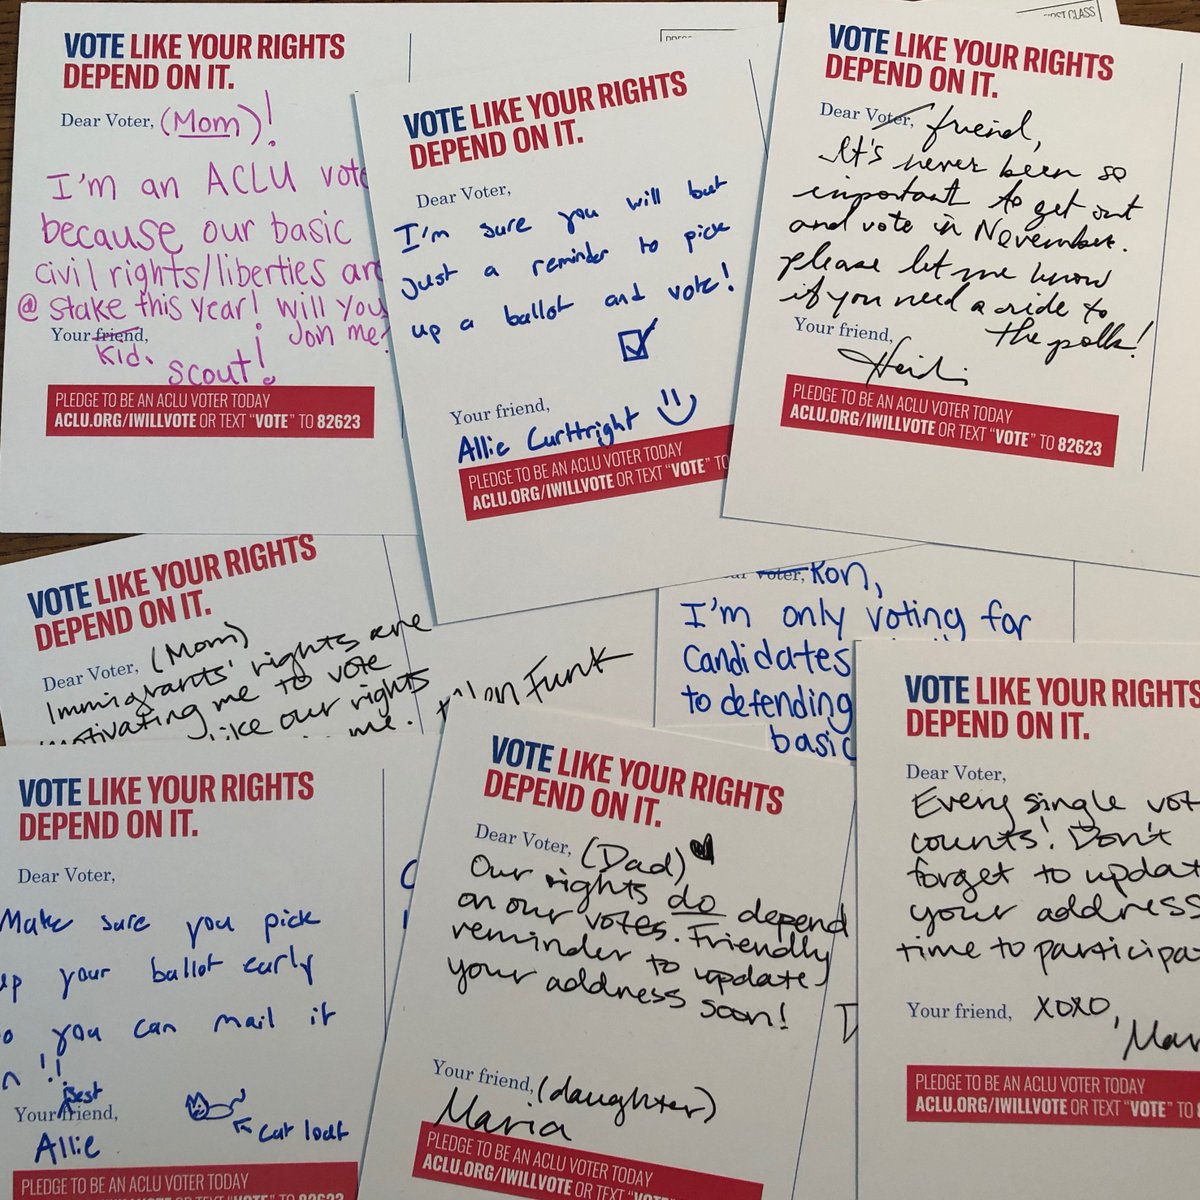 VOTE LIKE YOUR RIGHTS
DEPEND ON IT.
Dear Voter, (Mom)!
I'm an ACLU vote
because our basic
civil rights/liberties are
@ stake this year! Will you
Join me?
Your friend,
Kid.
Scout!
PLEDGE TO BE AN ACLU VOTER TODAY
ACLU.ORG/IWILLVOTE OR TEXT "VOTE" TO 82623
VOTE LIKE YOUR RIGHTS
DEPEND ON IT.
Dear Voter,
I'm sure you will but
just a reminder to pick
up a ballot and vote!
Your friend,
Allie Curttright
PLEDGE TO BE AN ACLU VOTER TODAY
ACLU.ORG/IWILLVOTE OR TEXT "VOTE" TO
FIRST CLASS
VOTE LIKE YOUR RIGHTS
DEPEND ON IT.
Dear Voter, friend,
It's never been so
important to get out
and vote in November.
please let me know
if you need a ride to
the polls!
Your friend,
Heidi
PLEDGE TO BE AN ACLU VOTER TODAY
ACLU.ORG/IWILLVOTE OR TEXT "VOTE" TO 82623
VOTE LIKE YOUR RIGHTS
DEPEND ON IT.
Dear Voter, (Mom)
Immigrants' rights are
motivating me to vote
like our rights
me.
Funk
Voter, Ron,
I'm only voting for
candidates
to defending
basic
VOTE LIKE YOUR RIGHTS
DEPEND ON IT.
Dear Voter,
Make sure you pick
up your ballot early
so you can mail it
in!!
Your best friend,
Allie
cat loaf
PLEDGE TO BE AN ACLU VOTER TODAY
ACLU.ORG/IWILLVOTE OR TEXT "VOTE" TO 82623
VOTE LIKE YOUR RIGHTS
DEPEND ON IT.
Dear Voter, (Dad)
Our rights do depend
on our votes. Friendly
reminder to update
your address soon!
Your friend, (daughter)
Maria
PLEDGE TO BE AN ACLU VOTER TODAY
ACLU.ORG/IWILLVOTE OR TEXT "VOTE"
VOTE LIKE YOUR RIGHTS
DEPEND ON IT.
Dear Voter,
Every single vot
counts! Don't
forget to updat
your address
time to participa
Your friend, XOXO,
Mar
PLEDGE TO BE AN ACLU VOTER TODAY
ACLU.ORG/IWILLVOTE OR TEXT "VOTE" TO